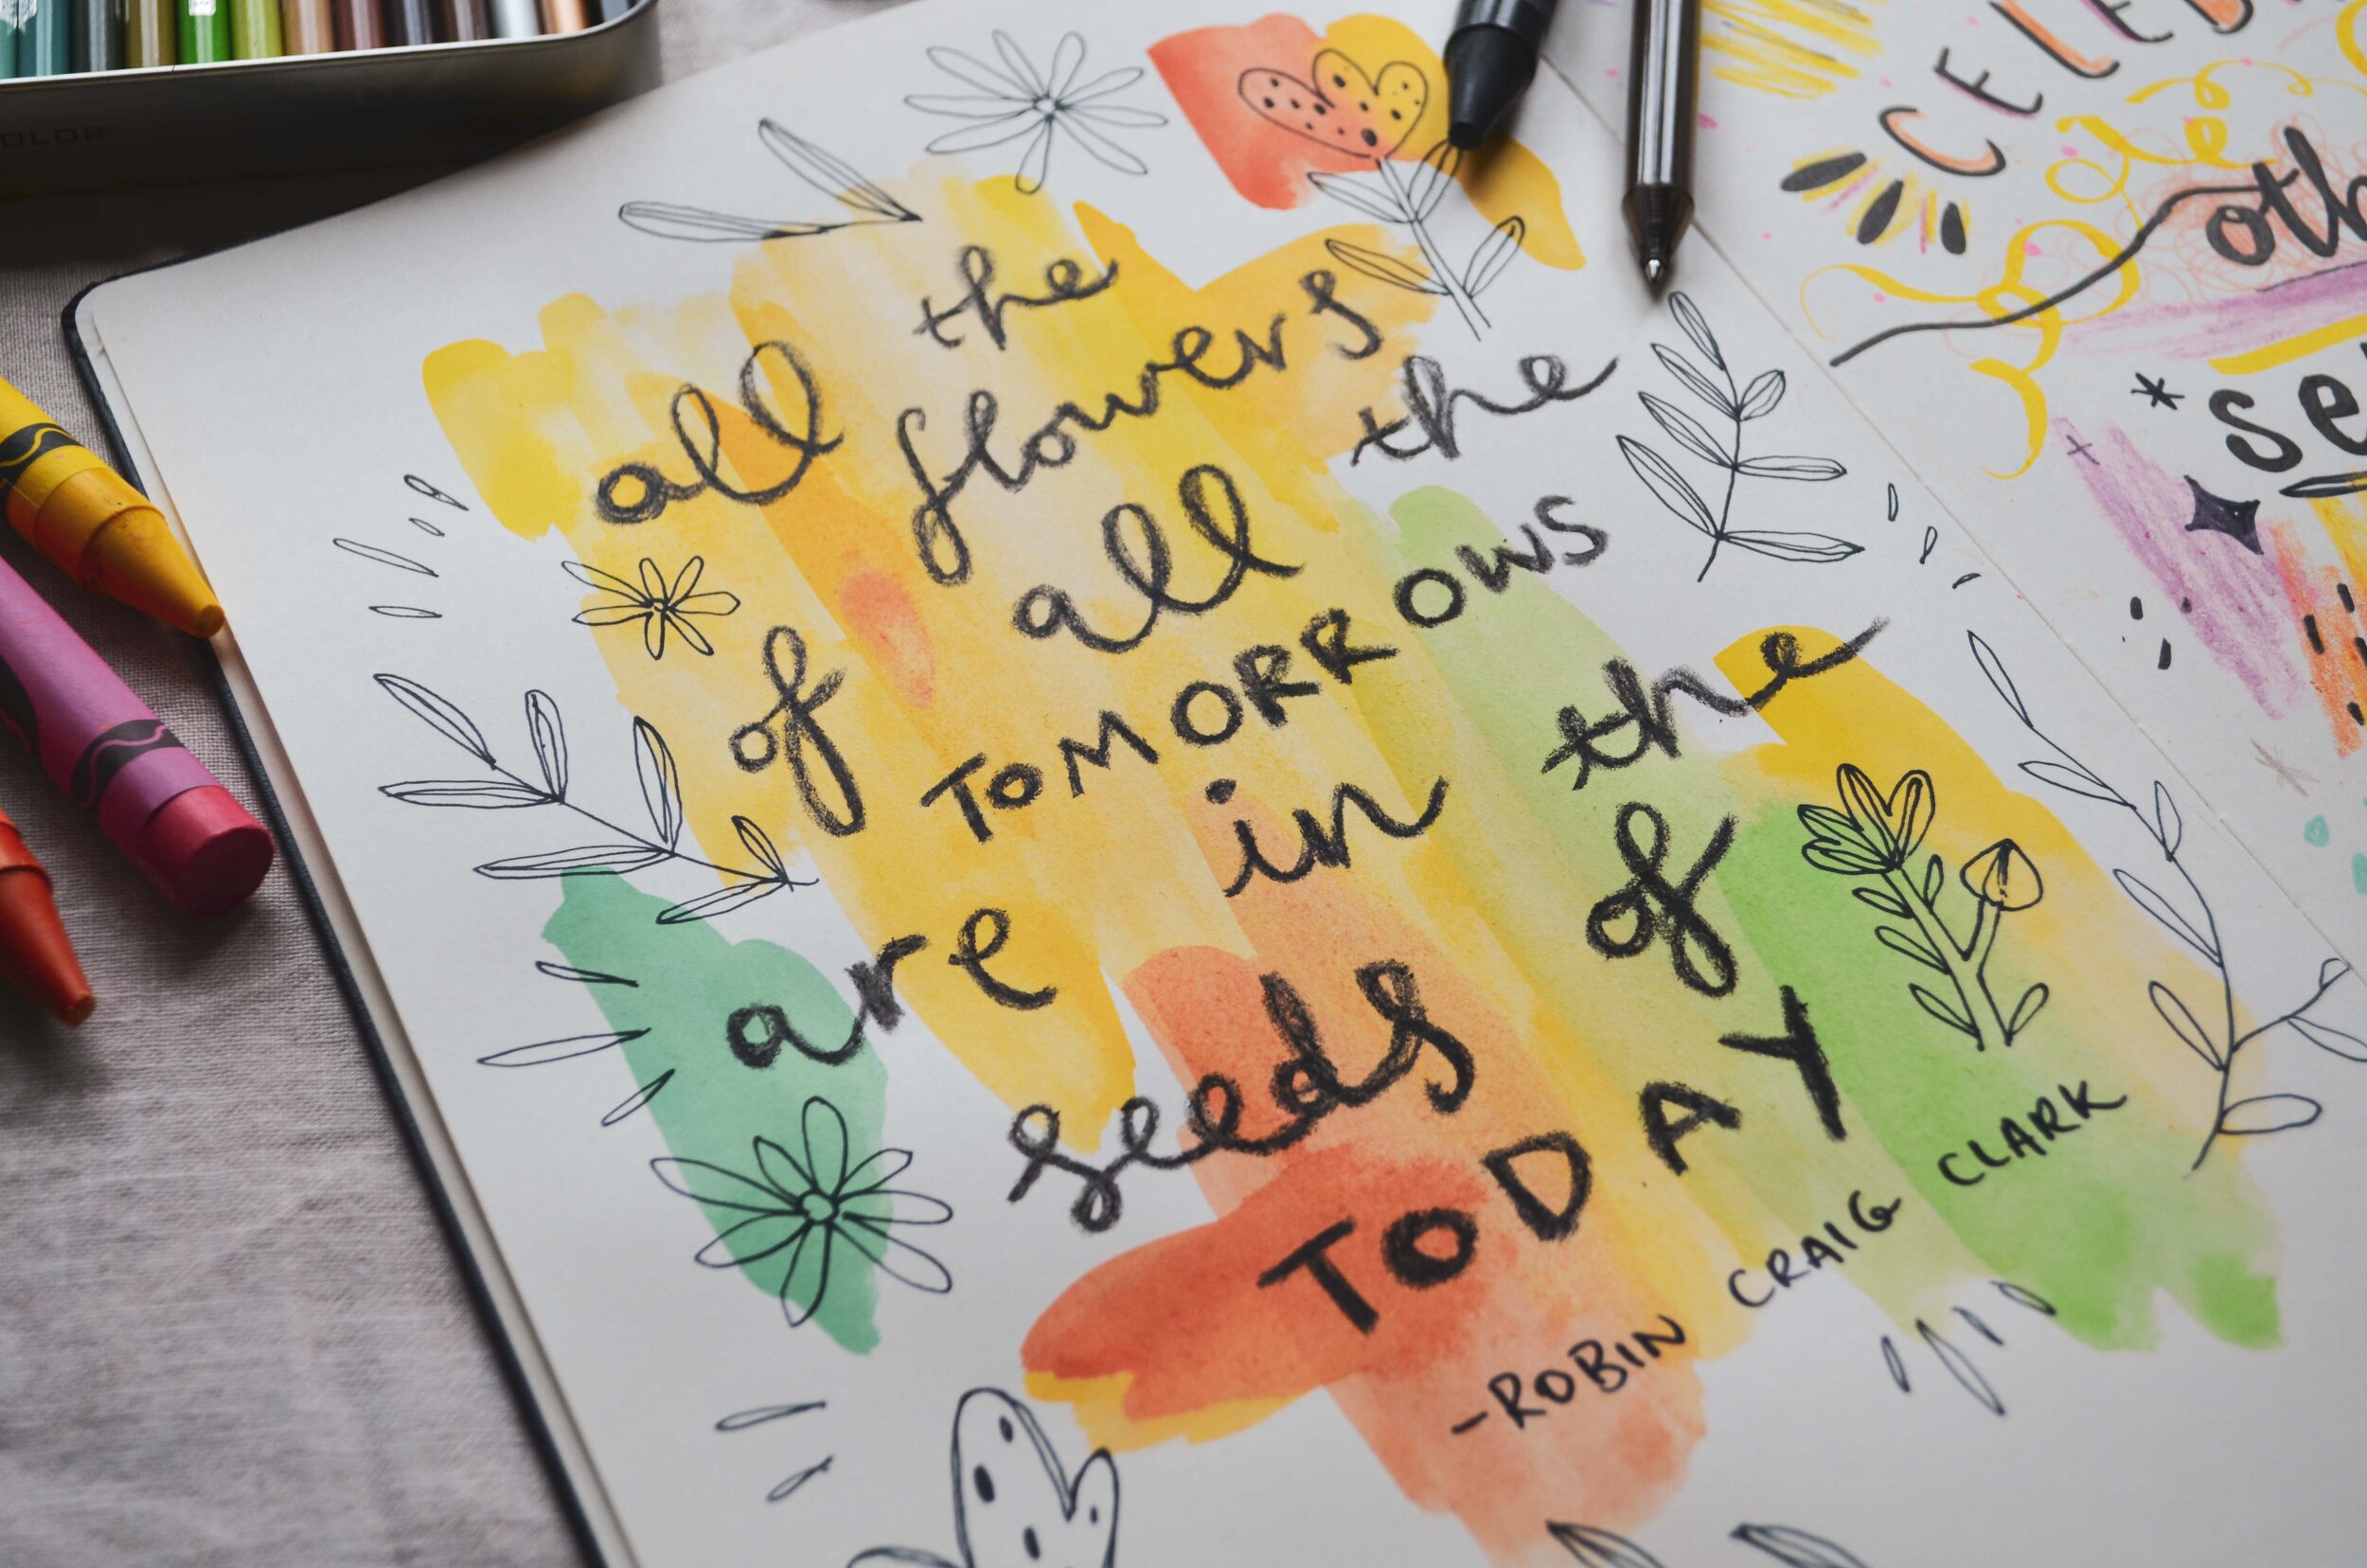 all the flowers
of all the
TOMORROWS
are in the
seeds of
TODAY
-ROBIN CRAIG CLARK
CELEB
oth
se
OLOR